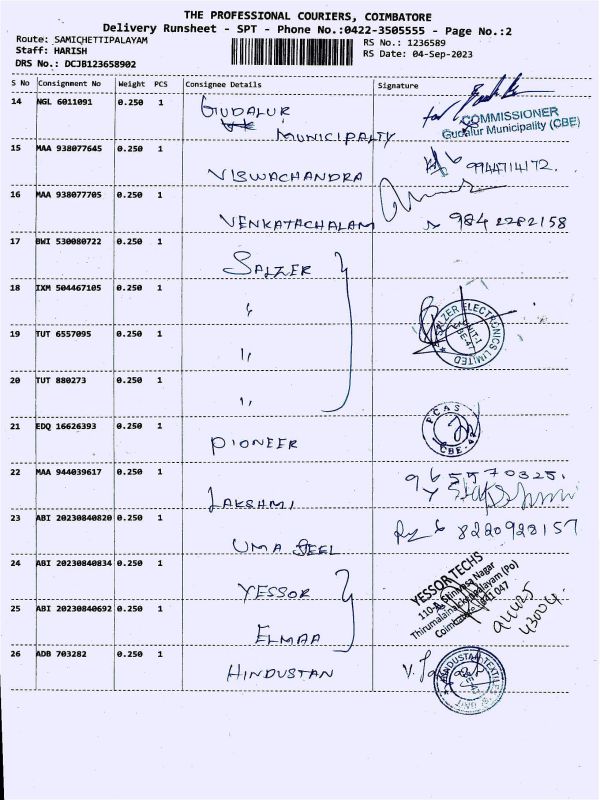 THE PROFESSIONAL COURIERS, COIMBATORE
Delivery Runsheet - SPT - Phone No.:0422-3505555 - Page No.:2
Route: SAMICHETTIPALAYAM RS No.: 1236589
Staff: HARISH RS Date: 04-Sep-2023
DRS No.: DCJB123658902
S No Consignment No Weight PCS Consignee Details Signature
14 NGL 6011091 0.250 1 GUDALUR
MUNICIPALTY
COMMISSIONER
Gudalur Municipality (CBE)
15 MAA 938077645 0.250 1 VISWACHANDRA 9944714172.
16 MAA 938077705 0.250 1 VENKATACHALAM 9842282158
17 BWI 530080722 0.250 1 SALZER
18 IXM 504467105 0.250 1 "
SALZER ELECTRONICS LIMITED
UNIT-1
CBE-47
19 TUT 6557095 0.250 1 "
20 TUT 880273 0.250 1 "
21 EDQ 16626393 0.250 1 PIONEER
PCAS
CBE-47
22 MAA 944039617 0.250 1 LAKSHMI 9655770325.
23 ABI 20230840820 0.250 1 UMA STEEL 8220923157
24 ABI 20230840834 0.250 1 YESSOR
YESSOR TECHS
110-A, Srinivasa Nagar
Thirumalainaickenpalayam (Po)
Coimbatore 641 047
25 ABI 20230840692 0.250 1 ELMAA
43004.
26 ADB 703282 0.250 1 HINDUSTAN
HINDUSTAN TEXTILES